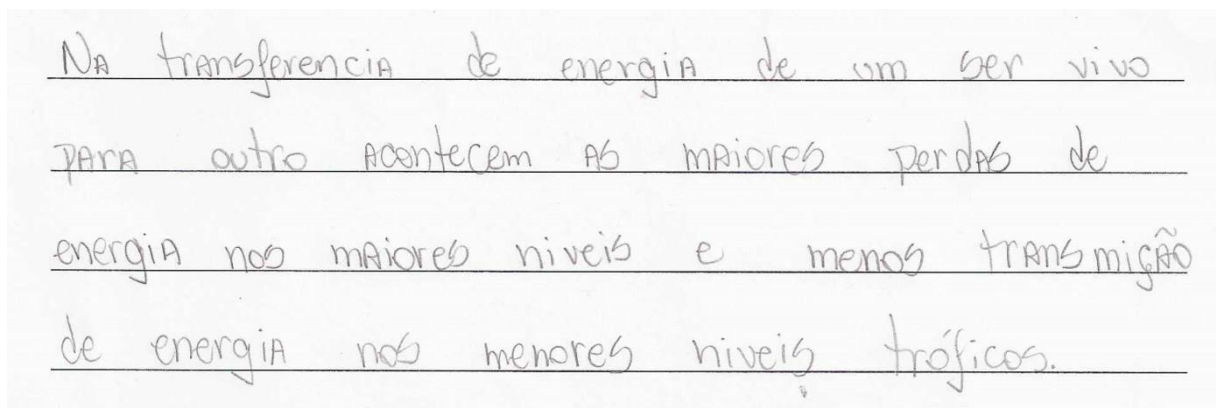 Na transferencia de energia de um ser vivo
para outro acontecem as maiores perdas de
energia nos maiores niveis e menos transmição
de energia nos menores niveis tróficos.